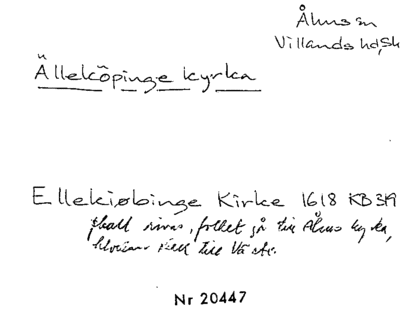 Åhus sn
Villands hd, Sk
Älleköpinge kyrka
Ellekiøbinge Kirke 1618 KB3:9
skall rivas, folket gå till Åhus kyrka,
till Vä
Nr 20447